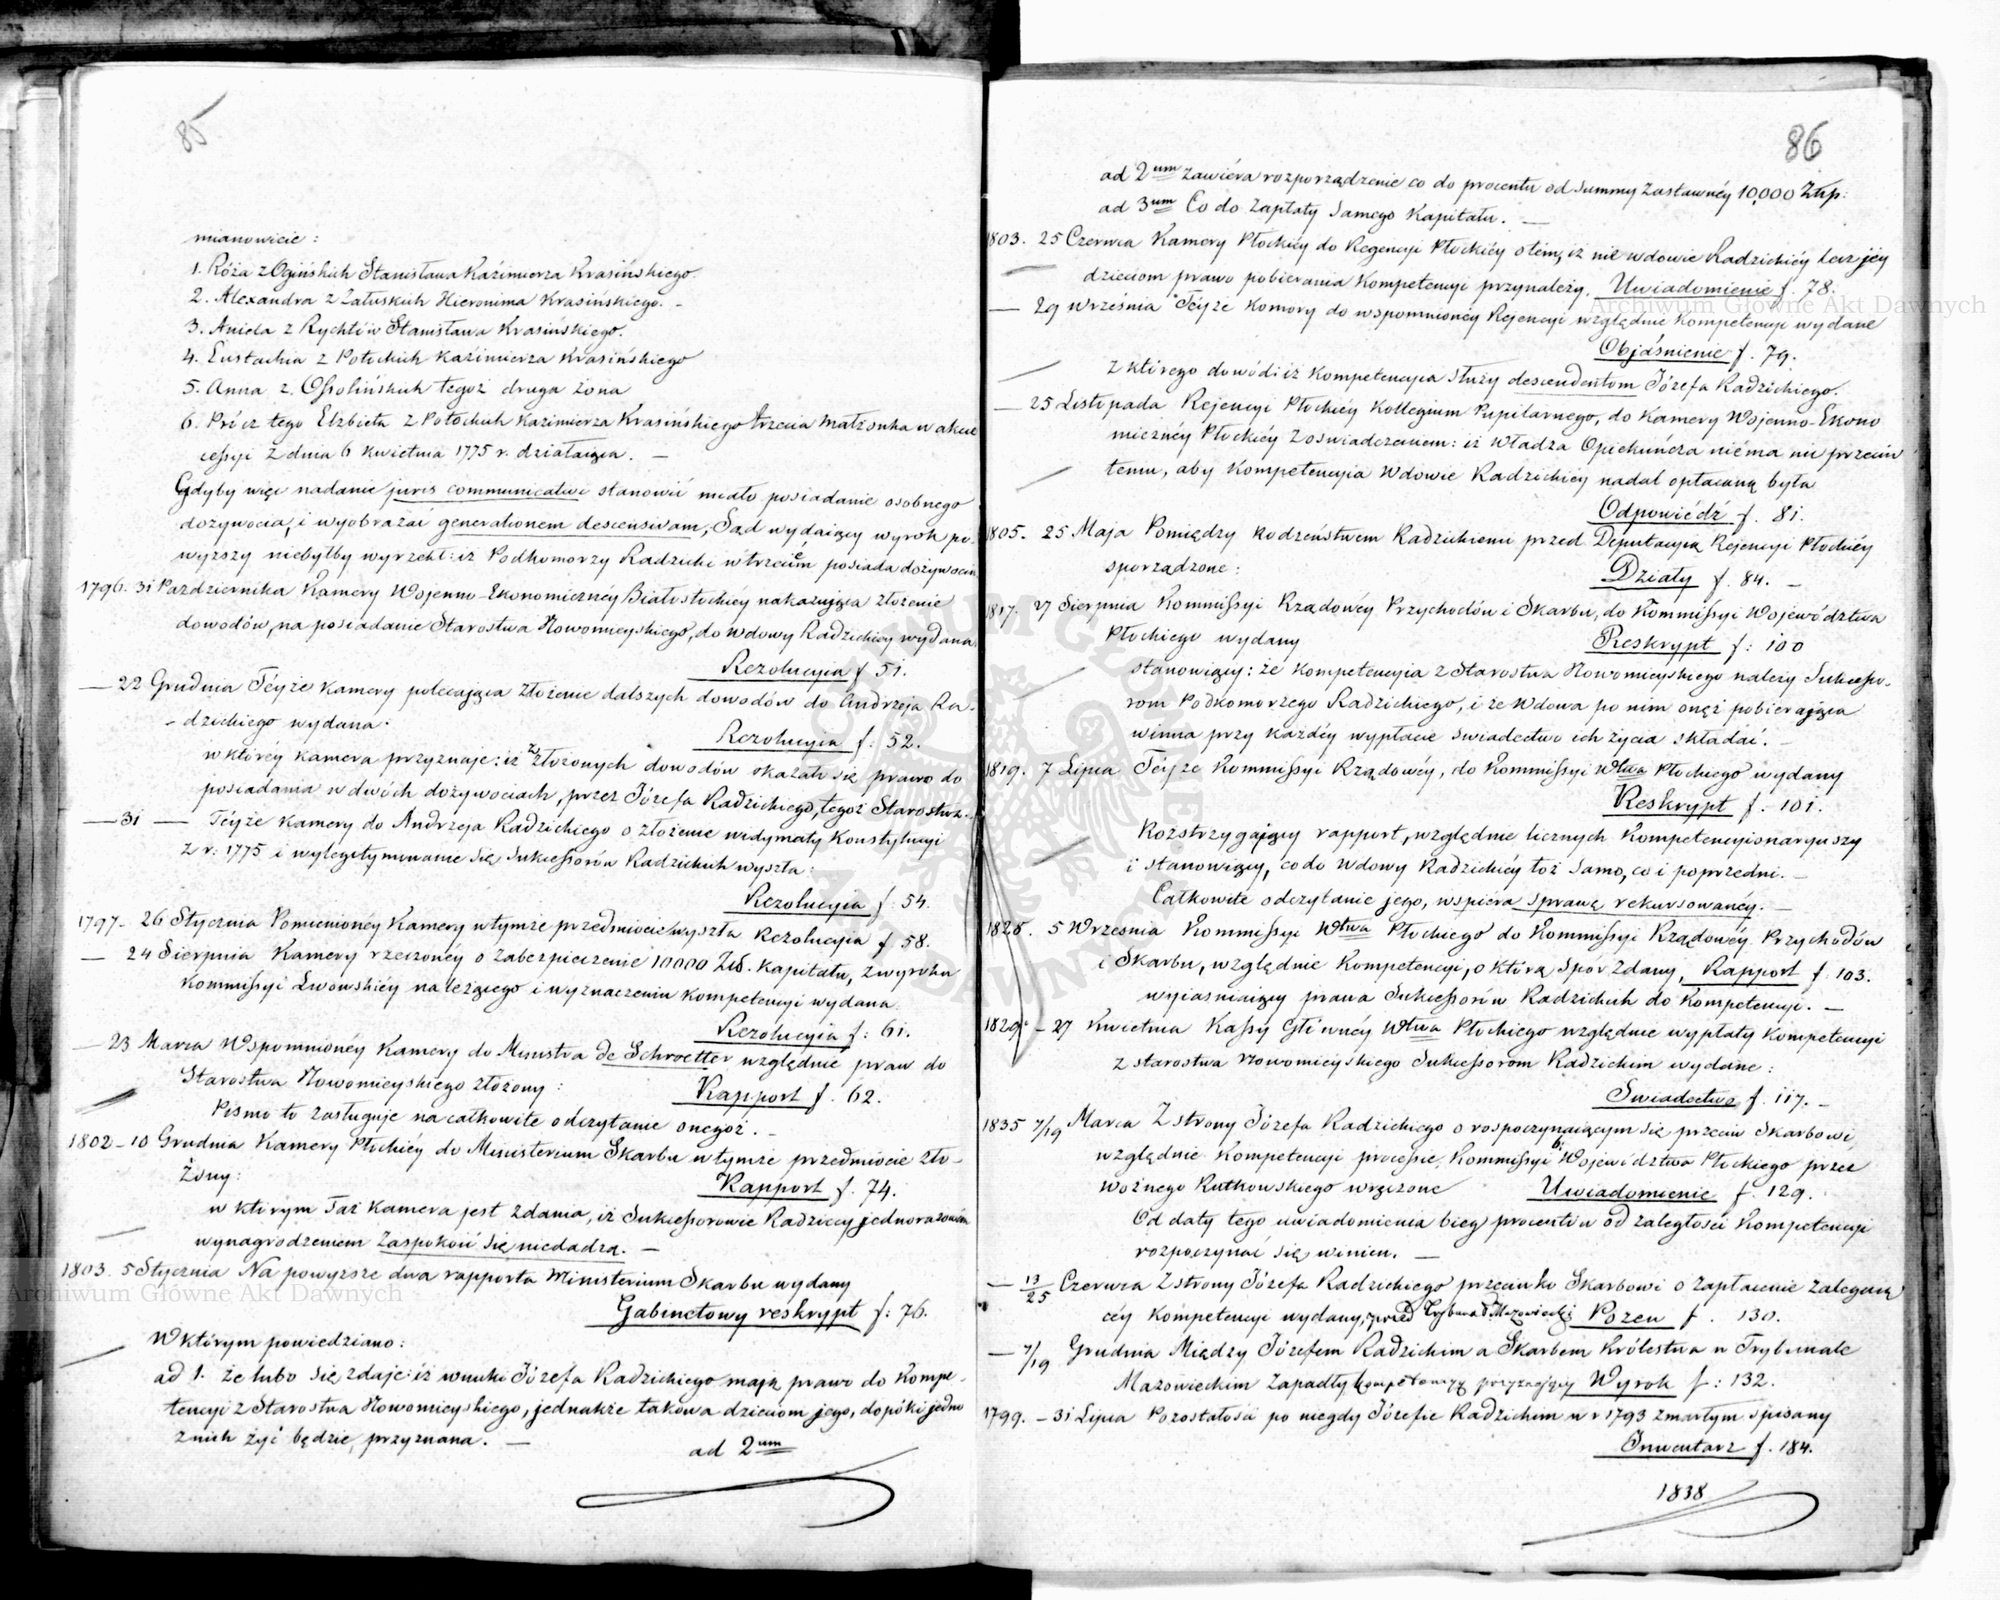 85
mianowicie:
1. Róża z Ogińskich Stanisława Kaźimierza Krasińskiego
2. Alexandra z Załuskich Hieronima Krasińskiego. -
3. Aniela z Rychłów Stanisława Krasińskiego.
4. Eustachia z Potockich Kaźimierza Krasińskiego
5. Anna z Ossolińskich tegoż druga żona
6. Prócz tego Elżbieta z Potockich Kaźimierza Krasińskiego trzecia małżonka w akcie
cessyi z dnia 6 Kwietnia 1775 r. działaiąca. —
Gdyby więc nadanie juris communicativi stanowić miało posiadanie osobnego
dożywocia, i wyobrażać generationem descensivam, Sąd wydaiący wyrok po-
wyższy niebyłby wyrzekł: iż Podkomorzy Radzicki w trzeciém posiada dożywocie
1796. 31 Pazdziernika Kamery Woienno-Ekonomicznéy Białostockiéy nakazuiąca złożenie
dowodów, na posiadanie Starostwa Nowomieyskiego, do wdowy Radzickiéy wydana
Rezolucyia f 51.
— 22 Grudnia Téyże Kamery polecaiąca złożenie dalszych dowodów do Andrzeja Ra-
- dzickiego wydana.
Rezolucyia f: 52.
w któréy Kamera przyznaje: iż z złożonych dowodów okazało się prawo do
posiadania w dwóch dożywociach, przez Józefa Radzickiego, tegoż Starostwa.
— 31 — Téyże Kamery do Andrzeja Radzickiego o złożenie widymaty Konstytucyi
z r: 1775 i wylegitymowanie się Sukcessorów Radzickich wyszła:
Rezolucyia f: 54.
1797- 26 Stycznia Pomienionéy Kamery w tymże przedmiocie wyszła Rezolucyia f 58.
— 24 Sierpnia Kamery rzeczonéy o zabezpieczenie 10000 Zł. Kapitału, z wyroku
Kommissyi Lwowskiéy należącego i wyznaczeniu Kompetencyi wydana
Rezolucyia f: 61.
— 23 Marca Wspomnionéy Kamery do Ministra de Schroetter względnie praw do
Starostwa Nowomieyskiego złożony:
Rapport f. 62.
Pismo to zasługuje na całkowite odczytanie onegoż. —
1802 - 10 Grudnia Kamery Płockiéy do Ministerium Skarbu w tymże przedmiocie zło-
żony:
Rapport f. 74.
w którym Taż Kamera jest zdania, iż Sukcessorowie Radziccy jednorazowém
wynagrodzeniem zaspokoić się niedadzą. —
1803. 5 Stycznia Na powyższe dwa rapporta Ministerium Skarbu wydany
Gabinetowy reskrypt f: 76.
W którym powiedziano:
ad 1. że lubo się zdaje: iż wnuki Józefa Radzickiego mają prawo do Kompe-
tencyi z Starostwa Nowomieyskiego, jednakże takowa dzieciom jego, dopóki jedno
z nich żyć będzie, przyznana. —
ad 2um
86
ad 2um zawiéra rozporządzenie co do procentu od Summy zastawnéy 10,000 Złtp:
ad 3um Co do zapłaty samego Kapitału. —
1803. 25 Czerwca Kamery Płockiéy do Regencyi Płockiéy o tem, iż nie wdowie Radzickiéy lecz jéy
dzieciom prawo pobierania Kompetencyi przynależy. Uwiadomienie f. 78.
— 29 Września Téyże Komory do wspomnionéy Rejencyi względnie Kompetencyi wydane
Objaśnienie f. 79.
z którego dowódi iż Kompetencyia służy descendentom Józefa Radzickiego.
— 25 Listopada Rejencyi Płockiéy Kollegium Pupilarnego, do Kamery Wojenno-Ekono
micznéy Płockiéy z oświadczeniem: iż władza Opiekuńcza niéma nic przeciw
temu, aby Kompetencyia Wdowie Radzickiéy nadal opłacaną była
Odpowiédź f. 81.
1805. 25 Maja Pomiędzy Rodzeństwem Radzickiemi przed Deputacyią Rejencyi Płockiéy
sporządzone:
Działy f. 84. -
1817. 27 Sierpnia Kommissyi Rządowéy Przychodów i Skarbu, do Kommissyi Województwa
Płockiego wydany
Reskrypt f: 100
stanowiący: że Kompetencyia z Starostwa Nowomieyskiego należy Sukcesso-
rom Podkomorzego Radzickiego, i że Wdowa po nim onęż pobierająca
winna przy każdéy wypłacie świadectwo ich życia składać. —
1819. 7 Lipca Téjże Kommissyi Rządowéy, do Kommissyi Wtwa Płockiego wydany
Reskrypt f. 101.
Rozstrzygający rapport, względnie licznych Kompetencyionaryuszy
i stanowiący, co do wdowy Radzickiéy toż samo, co i poprzedni. —
Całkowite odczytanie jego, wspiéra sprawę rekursowanéy. —
1825. 5 Września Kommissyi Wtwa Płockiego do Kommissyi Rządowéy Przychodów
i Skarbu, względnie Kompetencyi, o którą Spór zdany, Rapport f: 103.
wyiaśniaiący prawa Sukcessorów Radzickich do Kompetencyi. —
1829. - 27 Kwietnia Kassy Głównéy Wtwa Płockiego względnie wypłaty Kompetencyi
z starostwa Nowomieyskiego Sukcessorom Radzickim wydane:
Swiadectwo f. 117. -
1835 7/19 Marca Z strony Józefa Radzickiego o rospoczynaiącym się przeciw Skarbowi
względnie Kompetencyi processie, Kommissyi b. Województwa Płockiego przez
woźnego Rutkowskiego wręczone
Uwiadomienie f. 129.
Od daty tego uwiadomienia bieg procentów od zaległości Kompetencyi
rozpoczynać się winien. —
— 13/25 Czerwca Z strony Józefa Radzickiego przeciwko Skarbowi o zapłacenie zalegaią
céy Kompetencyi wydany, przed Trybunał Mazowiecki Pozew f. 130.
— 7/19 Grudnia Między Józefem Radzickim a Skarbem Królestwa w Trybunale
Mazowieckim zapadły Kompetencyę przyznaiący Wyrok f: 132.
1799. - 31 Lipca Pozostałości po niegdy Józefie Radzickim w r 1793 zmarłym spisany
Inwentarz f. 184.
1838
Archiwum Główne Akt Dawnych
Archiwum Główne Akt Dawnych
ARCHIWUM GŁÓWNE AKT DAWNYCH